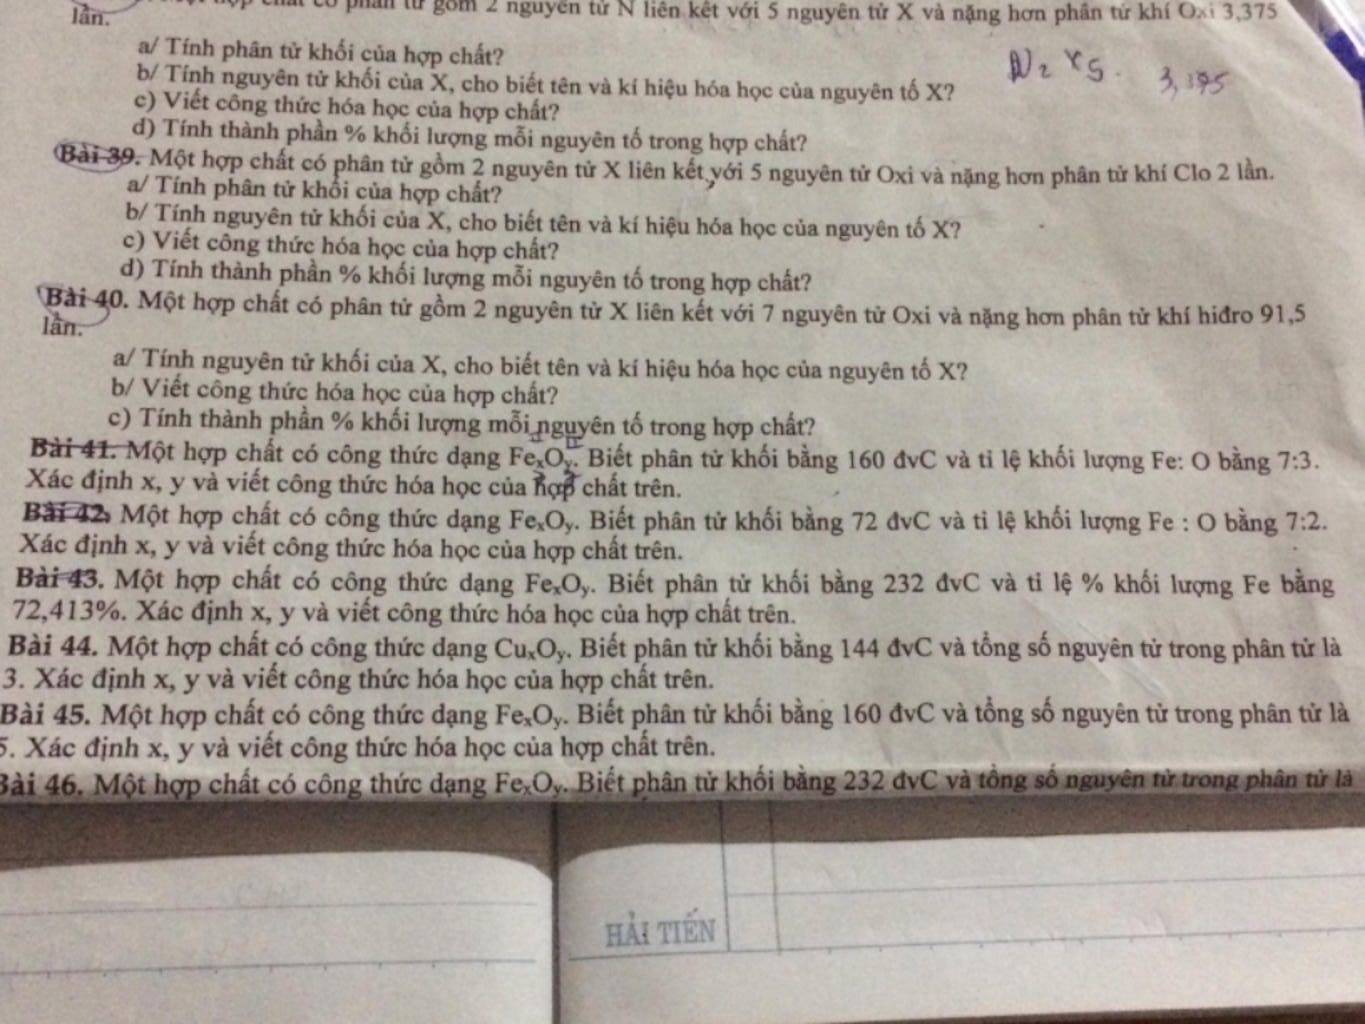 phân tử gồm 2 nguyên tử N liên kết với 5 nguyên tử X và nặng hơn phân tử khí Oxi 3,375
lần.
a/ Tính phân tử khối của hợp chất?
b/ Tính nguyên tử khối của X, cho biết tên và kí hiệu hóa học của nguyên tố X?
c) Viết công thức hóa học của hợp chất?
d) Tính thành phần % khối lượng mỗi nguyên tố trong hợp chất?
N2 X5. 3,375
Bài 39. Một hợp chất có phân tử gồm 2 nguyên tử X liên kết với 5 nguyên tử Oxi và nặng hơn phân tử khí Clo 2 lần.
a/ Tính phân tử khối của hợp chất?
b/ Tính nguyên tử khối của X, cho biết tên và kí hiệu hóa học của nguyên tố X?
c) Viết công thức hóa học của hợp chất?
d) Tính thành phần % khối lượng mỗi nguyên tố trong hợp chất?
Bài 40. Một hợp chất có phân tử gồm 2 nguyên tử X liên kết với 7 nguyên tử Oxi và nặng hơn phân tử khí hiđro 91,5
lần.
a/ Tính nguyên tử khối của X, cho biết tên và kí hiệu hóa học của nguyên tố X?
b/ Viết công thức hóa học của hợp chất?
c) Tính thành phần % khối lượng mỗi nguyên tố trong hợp chất?
Bài 41. Một hợp chất có công thức dạng FexOy. Biết phân tử khối bằng 160 đvC và tỉ lệ khối lượng Fe: O bằng 7:3.
Xác định x, y và viết công thức hóa học của hợp chất trên.
Bài 42. Một hợp chất có công thức dạng FexOy. Biết phân tử khối bằng 72 đvC và tỉ lệ khối lượng Fe : O bằng 7:2.
Xác định x, y và viết công thức hóa học của hợp chất trên.
Bài 43. Một hợp chất có công thức dạng FexOy. Biết phân tử khối bằng 232 đvC và tỉ lệ % khối lượng Fe bằng
72,413%. Xác định x, y và viết công thức hóa học của hợp chất trên.
Bài 44. Một hợp chất có công thức dạng CuxOy. Biết phân tử khối bằng 144 đvC và tổng số nguyên tử trong phân tử là
3. Xác định x, y và viết công thức hóa học của hợp chất trên.
Bài 45. Một hợp chất có công thức dạng FexOy. Biết phân tử khối bằng 160 đvC và tổng số nguyên tử trong phân tử là
5. Xác định x, y và viết công thức hóa học của hợp chất trên.
Bài 46. Một hợp chất có công thức dạng FexOy. Biết phân tử khối bằng 232 đvC và tổng số nguyên tử trong phân tử là
HẢI TIẾN